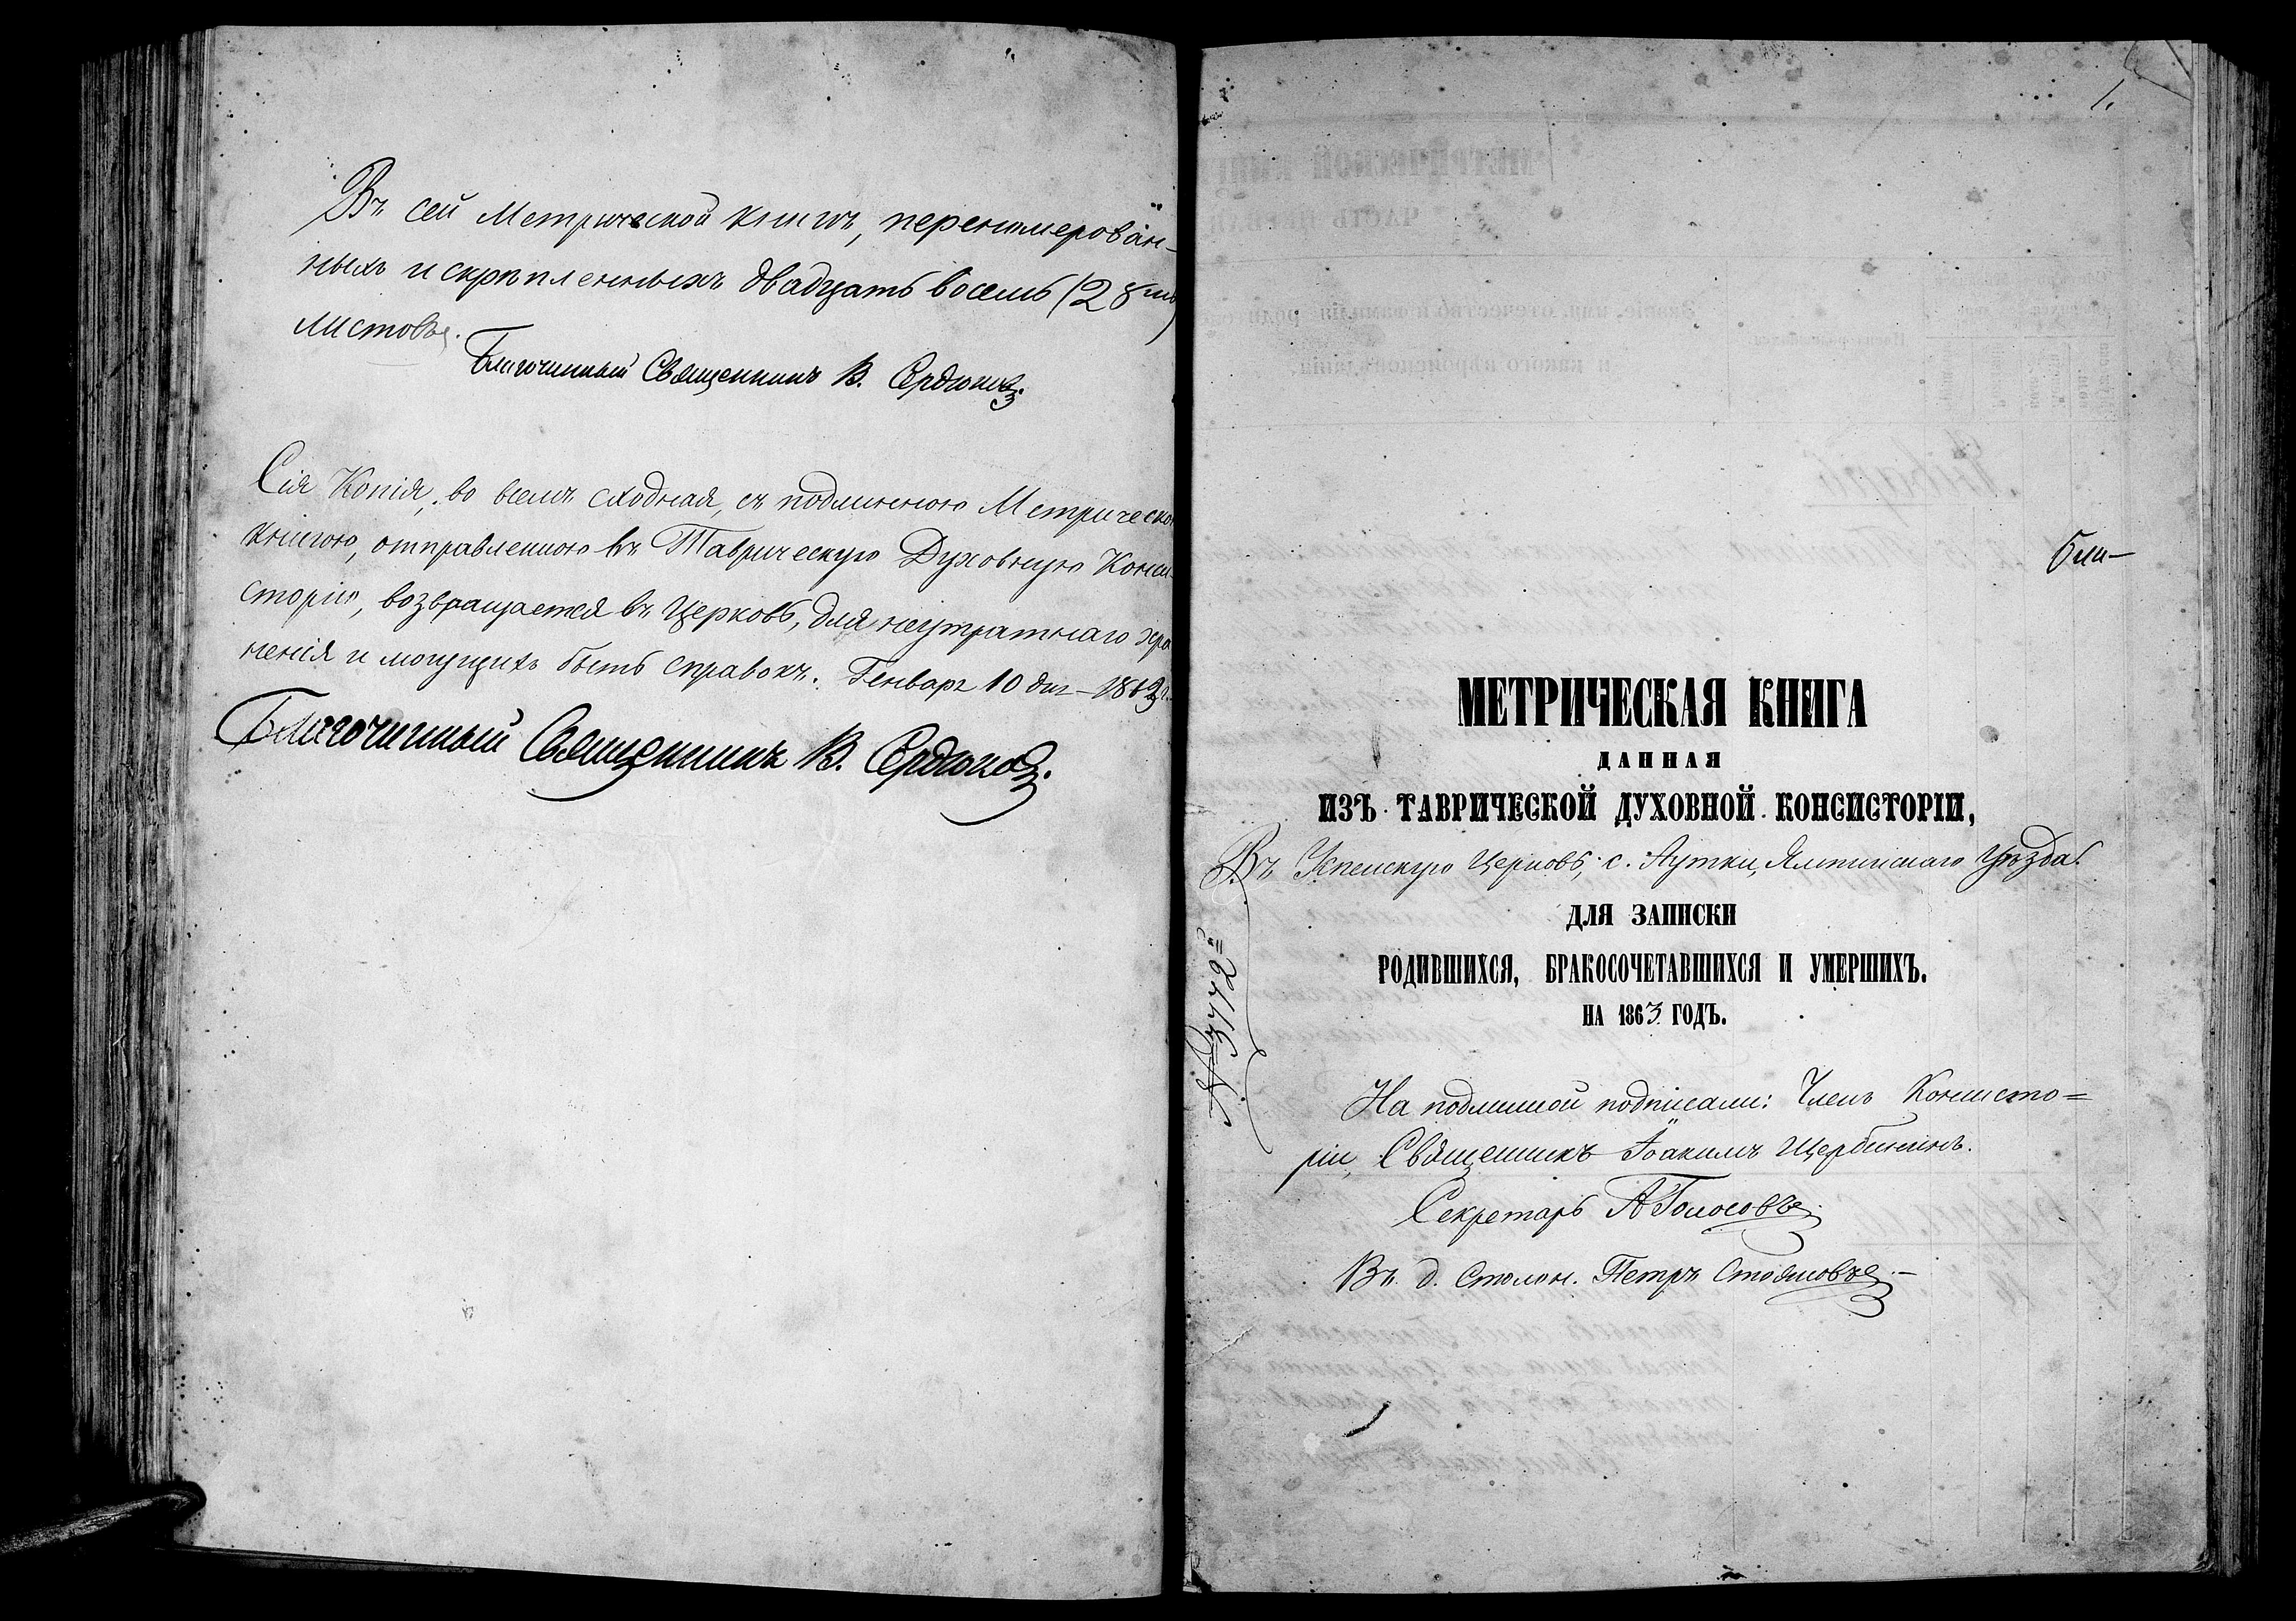 Въ сей Метрической книгѣ, перенумерован-
ныхъ и скрѣпленныхъ двадцать восемь (28мь)
листовъ.
Благочинный Священникъ В. Сердюковъ.
Сія Копія, во всемъ сходная, съ подлинною Метрическою
книгою, отправленною въ Таврическую Духовную Конси-
сторію, возвращается въ Церковь, для неутратнаго хра-
ненія и могущихъ быть справокъ. Генваря 10 дня - 1863 г.
Благочинный Священникъ В. Сердюковъ.
1.
МЕТРИЧЕСКАЯ КНИГА
ДАННАЯ
ИЗЪ ТАВРИЧЕСКОЙ ДУХОВНОЙ КОНСИСТОРІИ,
Въ Успенскую Церковь, с. Аутки, Ялтинскаго Уѣзда.
ДЛЯ ЗАПИСКИ
РОДИВШИХСЯ, БРАКОСОЧЕТАВШИХСЯ И УМЕРШИХЪ.
НА 1863 ГОДЪ.
№ 3772
На подлинной подписали: Членъ Консисто=
ріи, Священникъ Іоакимъ Щербининъ.
Секретарь А Голосовъ
Въ д. Столон. Петръ Стояновъ